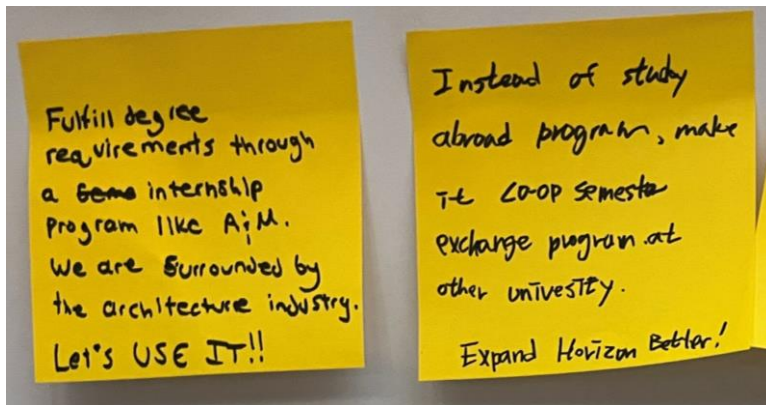 Fulfill degree
requirements through
a internship
program like A&M.
We are surrounded by
the architecture industry.
Let's USE IT!!
Instead of study
abroad program, make
it co-op semester
exchange program at
other univesity.
Expand Horizon Better!